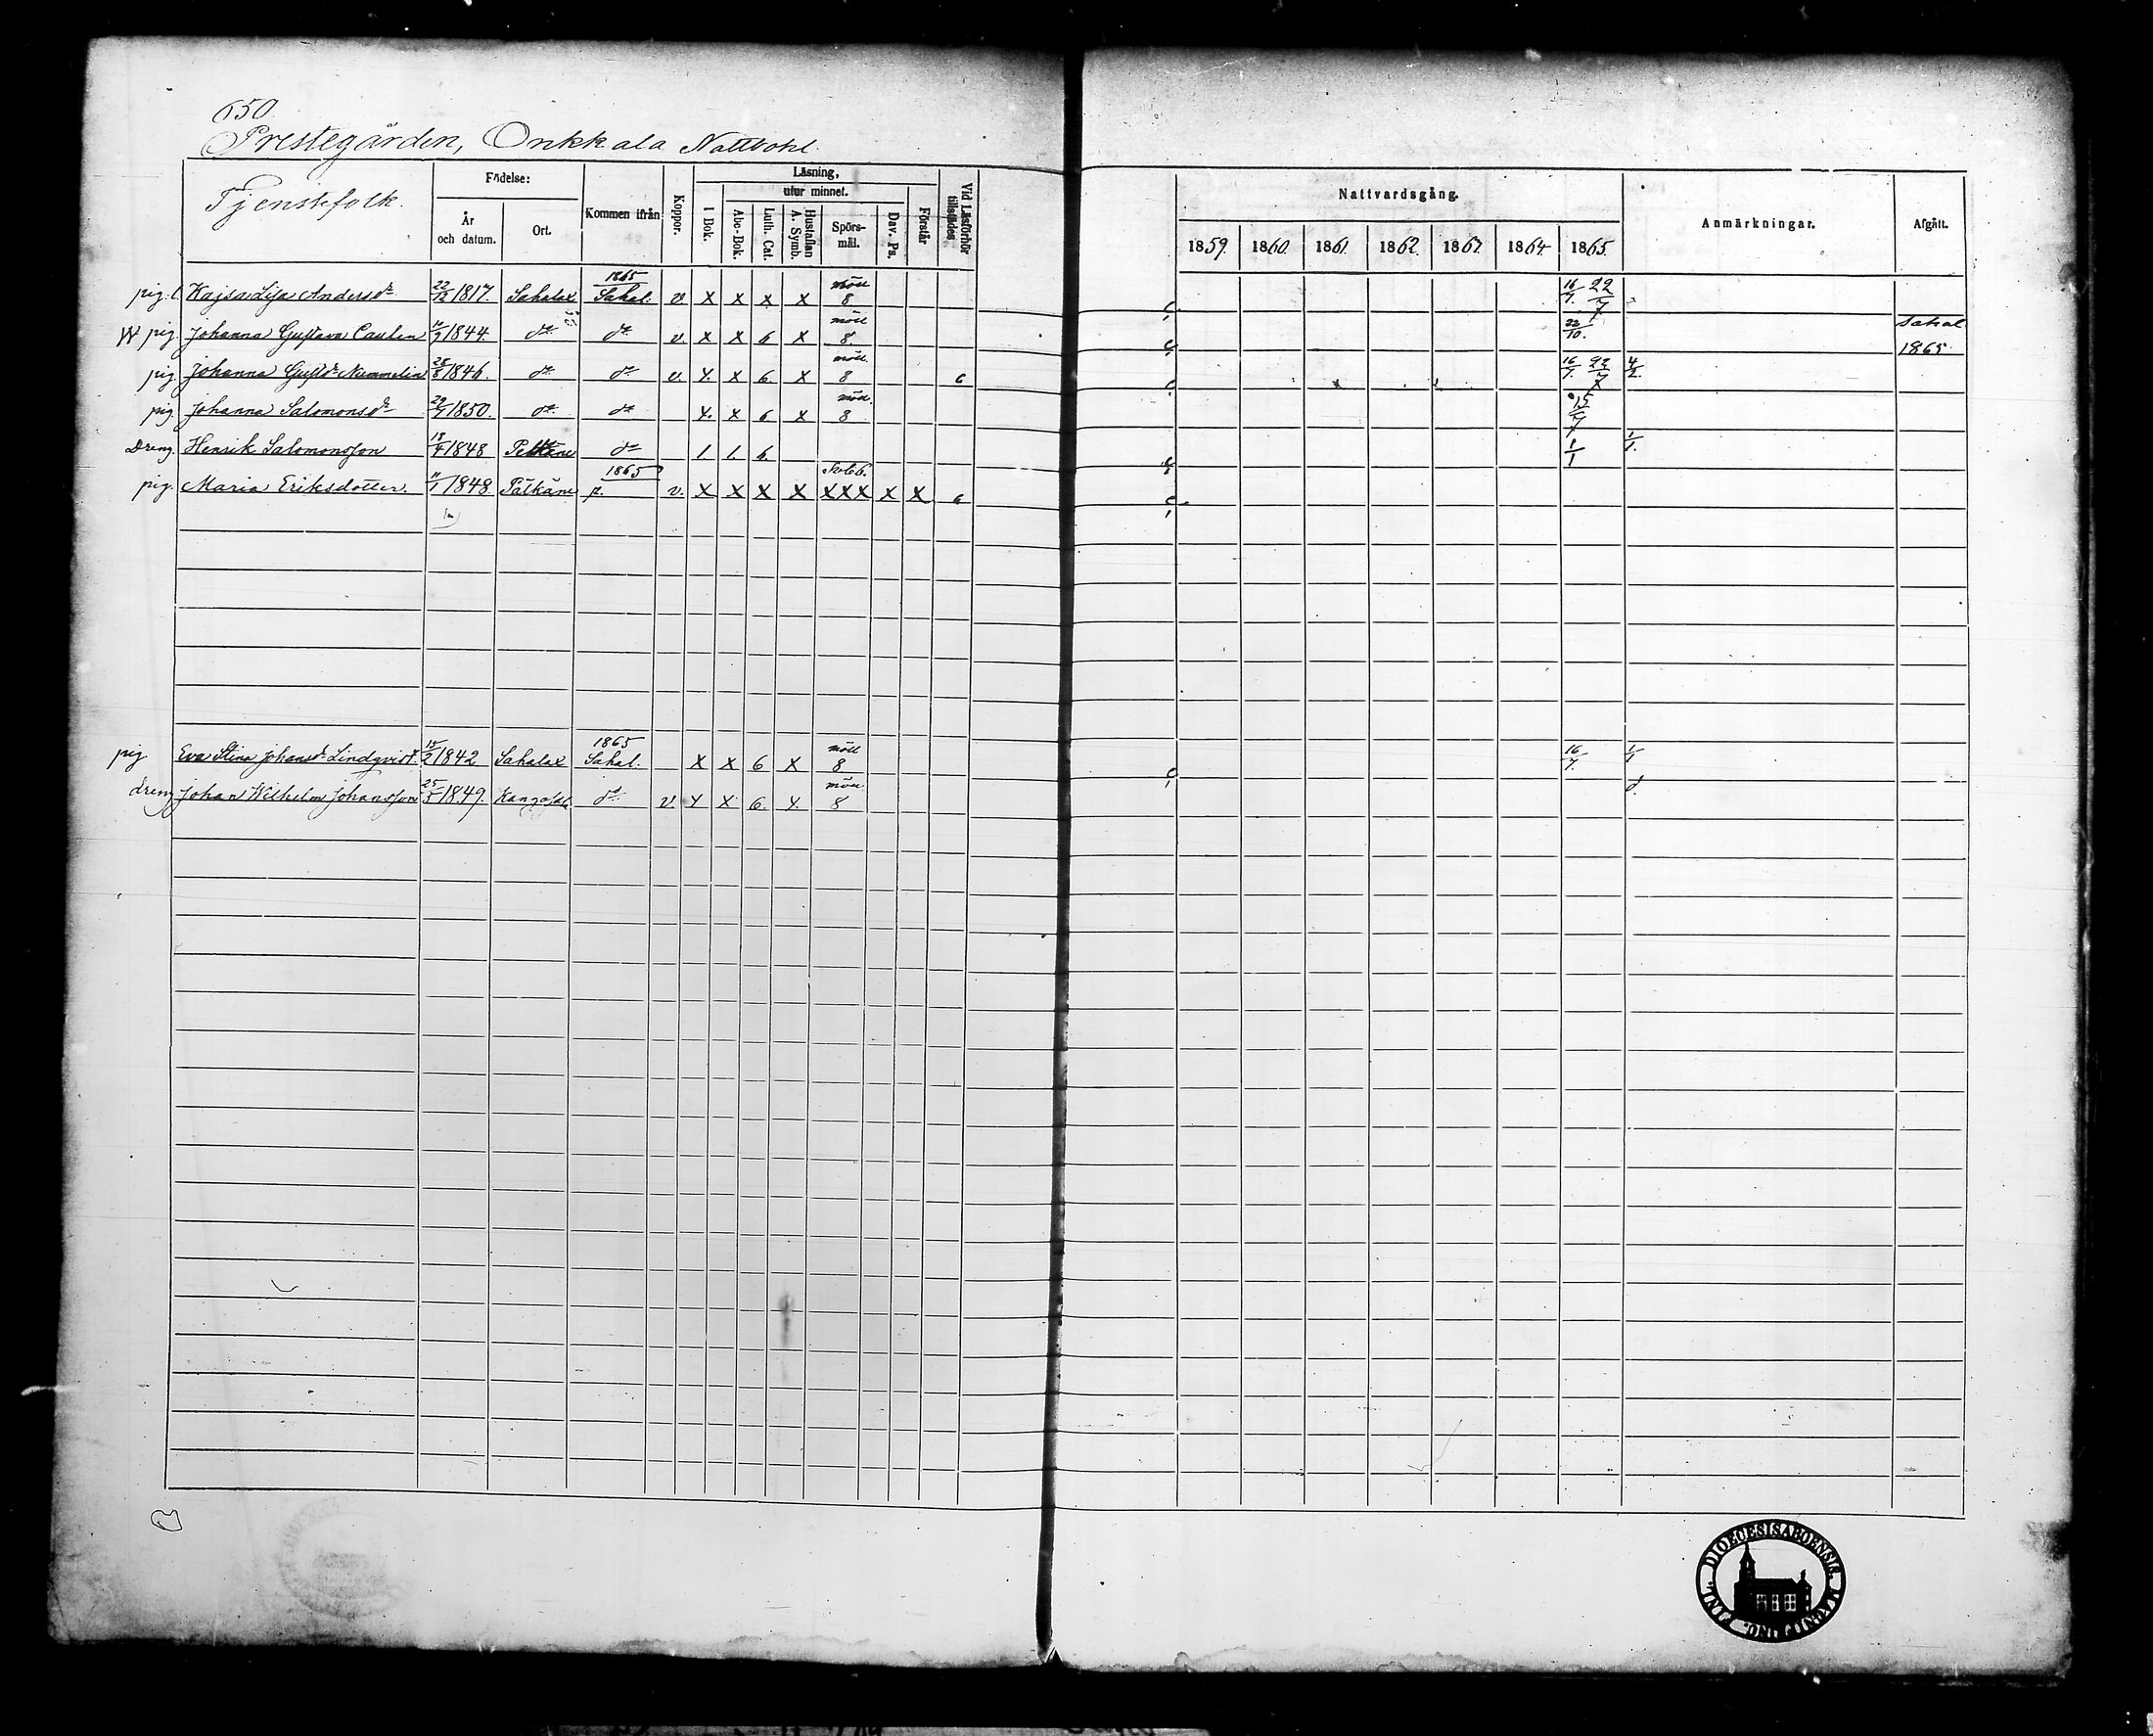 650.
Prestegården, Onkkala Nattbohl
Tjenstefolk.
Födelse:
År och datum.
Ort.
Kommen ifrån
Koppor.
Läsning,
I Bok.
utur minnet.
Abc-Bok.
Luth. Cat.
Hustaflan A. Symb.
Spörs-mål.
Dav. Ps.
Förstår
Vid Läsförhör tillstädes
Nattvardsgång.
1859. 1860. 1861. 1862. 1863. 1864. 1865.
Anmärkningar.
Afgått.
pig. Kajsa Lisa Andersdr 22/12 1817. Sahalax 1865 Sahal. v. x x x x möll 8 16/7. 22/7
pig. Johanna Gustava Caulen 1844. do do v. x x 6 x möll 8. 22/10. Sahal 1865
pig. Johanna Gustdr Nummelin 28/8 1846. do do v. x. x 6. x möll. 8 6 16/7. 22/7 4/2.
pig. Johanna Salomonsdr 29/7 1850. do do x. x 6 x möll. 8 15/7
Dreng Henrik Salomonsson 18/4 1848 do 1. 1. 6. 1/1 1/1.
pig. Maria Eriksdotter. 1848 Pälkäne 1865 p. v. x x x x xxx x x 6
pig Eva Stina Johansdr Lindqvist. 15/2 1842 Sahalax 1865 Sahal. x x 6 x möll 8 16/7. 1/1
dreng Johan Wilhelm Johansson 25/5 1849. Kangasala do v. x x 6. x. möll 8
DIOECESIS ABOENSIS.